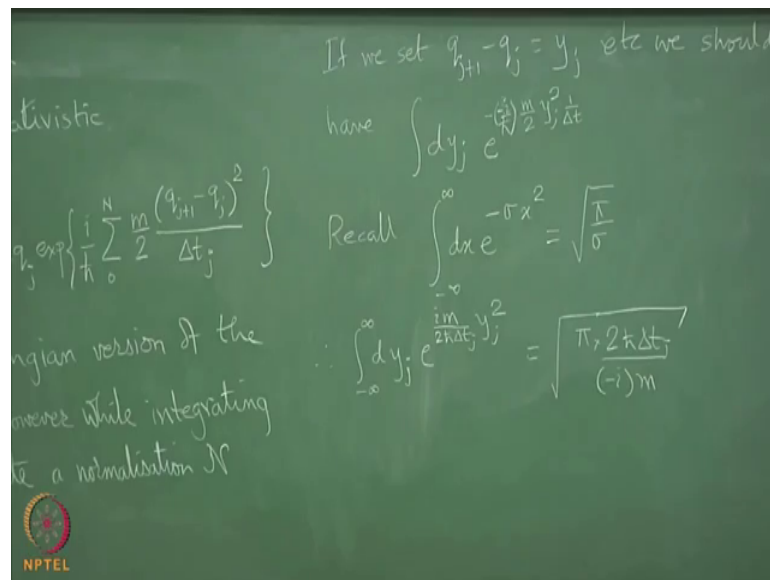 ativistic
q_j exp{ i/ħ ∑_0^N m/2 (q_{j+1} - q_j)^2 / Δt_j }
ngian version of the
owever while integrating
te a normalisation N
If we set q_{j+1} - q_j = y_j etc we should
have ∫ dy_j e^{-(-i/ħ) m/2 y_j^2 1/Δt}
Recall ∫_{-∞}^{∞} dx e^{-σx^2} = √(π/σ)
∴ ∫_{-∞}^{∞} dy_j e^{im/(2ħΔt_j) y_j^2} = √(π × 2ħΔt_j / (-i)m)
NPTEL